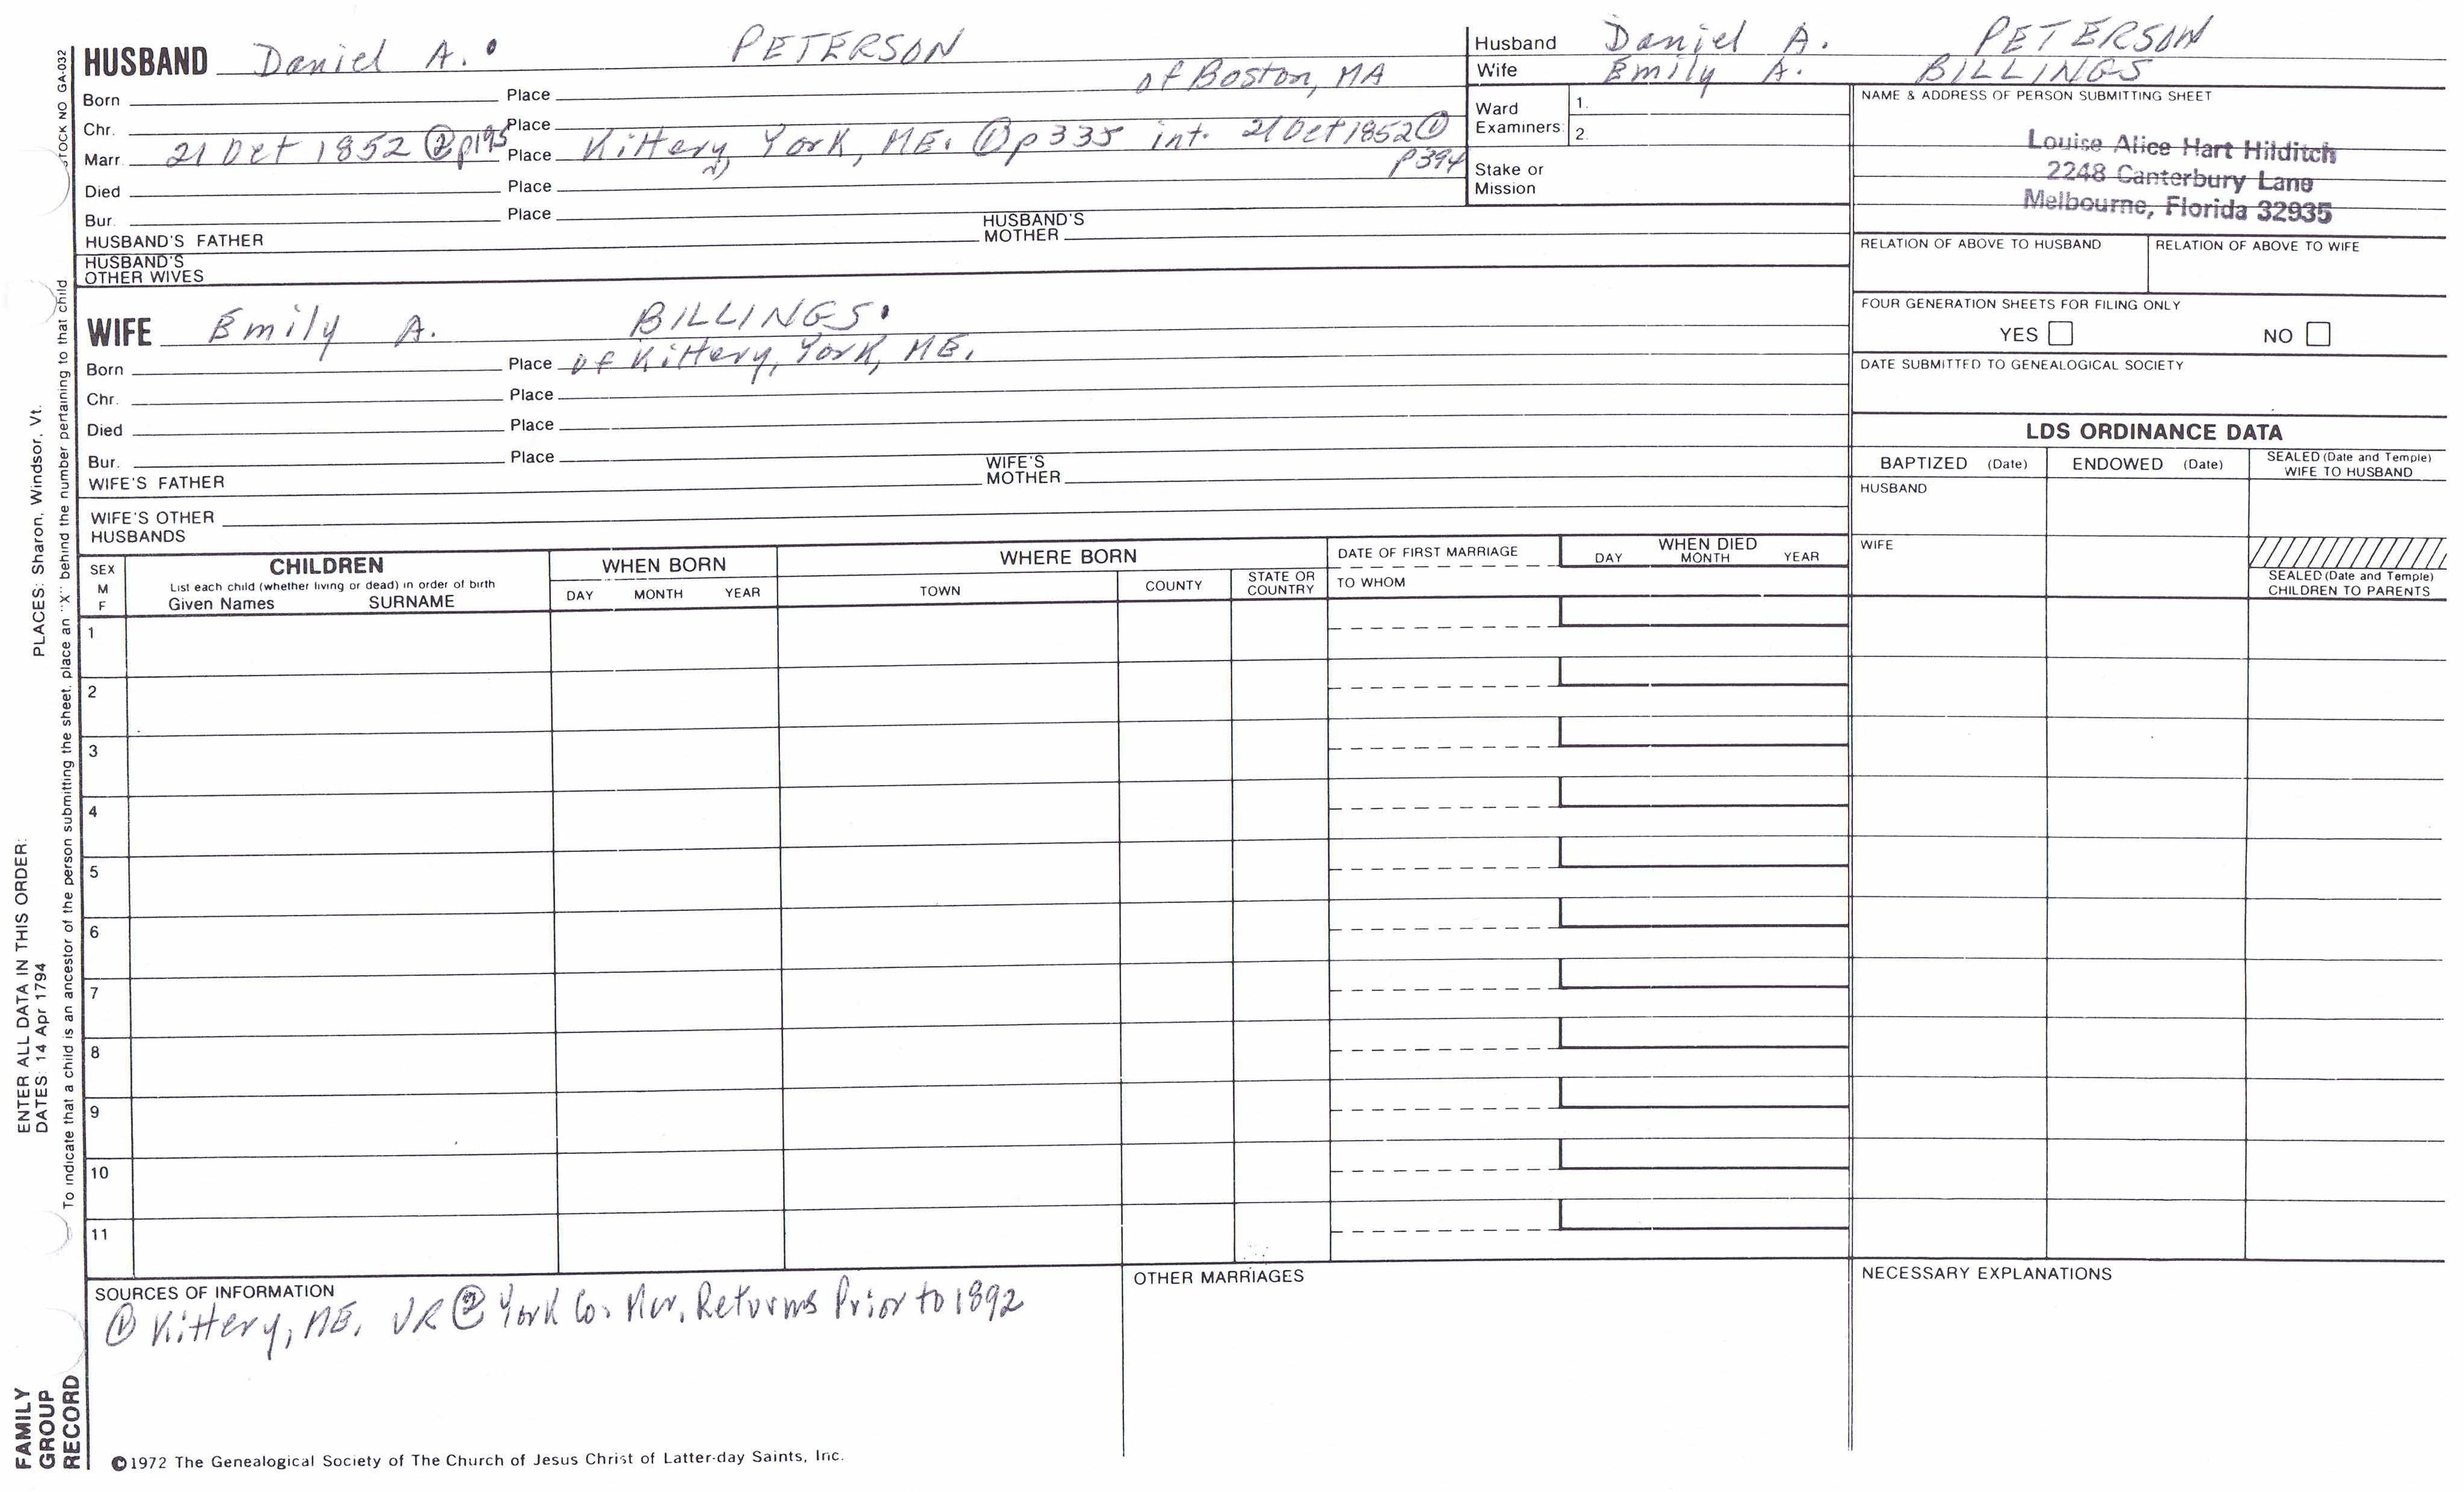 HUSBAND Daniel A. PETERSON
of Boston, MA
Born Place
Chr. Place
Marr. 21 Oct 1852 ② p195 Place Kittery, York, ME. ① p335 int. 21 Oct 1852 ①
p394
Died Place
Bur. Place
HUSBAND'S FATHER HUSBAND'S MOTHER
HUSBAND'S
OTHER WIVES
WIFE Emily A. BILLINGS.
Born Place of Kittery, York, ME.
Chr. Place
Died Place
Bur. Place
WIFE'S FATHER WIFE'S MOTHER
WIFE'S OTHER
HUSBANDS
Husband Daniel A. PETERSON
Wife Emily A. BILLINGS
Ward
Examiners:
1.
2.
Stake or
Mission
NAME & ADDRESS OF PERSON SUBMITTING SHEET
Louise Alice Hart Hilditch
2248 Canterbury Lane
Melbourne, Florida 32935
RELATION OF ABOVE TO HUSBAND RELATION OF ABOVE TO WIFE
FOUR GENERATION SHEETS FOR FILING ONLY
YES NO
DATE SUBMITTED TO GENEALOGICAL SOCIETY
LDS ORDINANCE DATA
BAPTIZED (Date) ENDOWED (Date) SEALED (Date and Temple)
WIFE TO HUSBAND
HUSBAND
WIFE
SEALED (Date and Temple)
CHILDREN TO PARENTS
SEX
M
F
CHILDREN
List each child (whether living or dead) in order of birth
Given Names SURNAME
WHEN BORN
DAY MONTH YEAR
WHERE BORN
TOWN COUNTY STATE OR
COUNTRY
DATE OF FIRST MARRIAGE
TO WHOM
WHEN DIED
DAY MONTH YEAR
1
2
3
4
5
6
7
8
9
10
11
SOURCES OF INFORMATION
① Kittery, ME. VR ② York Co. Mar. Returns Prior to 1892
OTHER MARRIAGES
NECESSARY EXPLANATIONS
©1972 The Genealogical Society of The Church of Jesus Christ of Latter-day Saints, Inc.
STOCK NO GA-032
ENTER ALL DATA IN THIS ORDER:
DATES: 14 Apr 1794 PLACES: Sharon, Windsor, Vt.
To indicate that a child is an ancestor of the person submitting the sheet, place an "X" behind the number pertaining to that child.
FAMILY
GROUP
RECORD